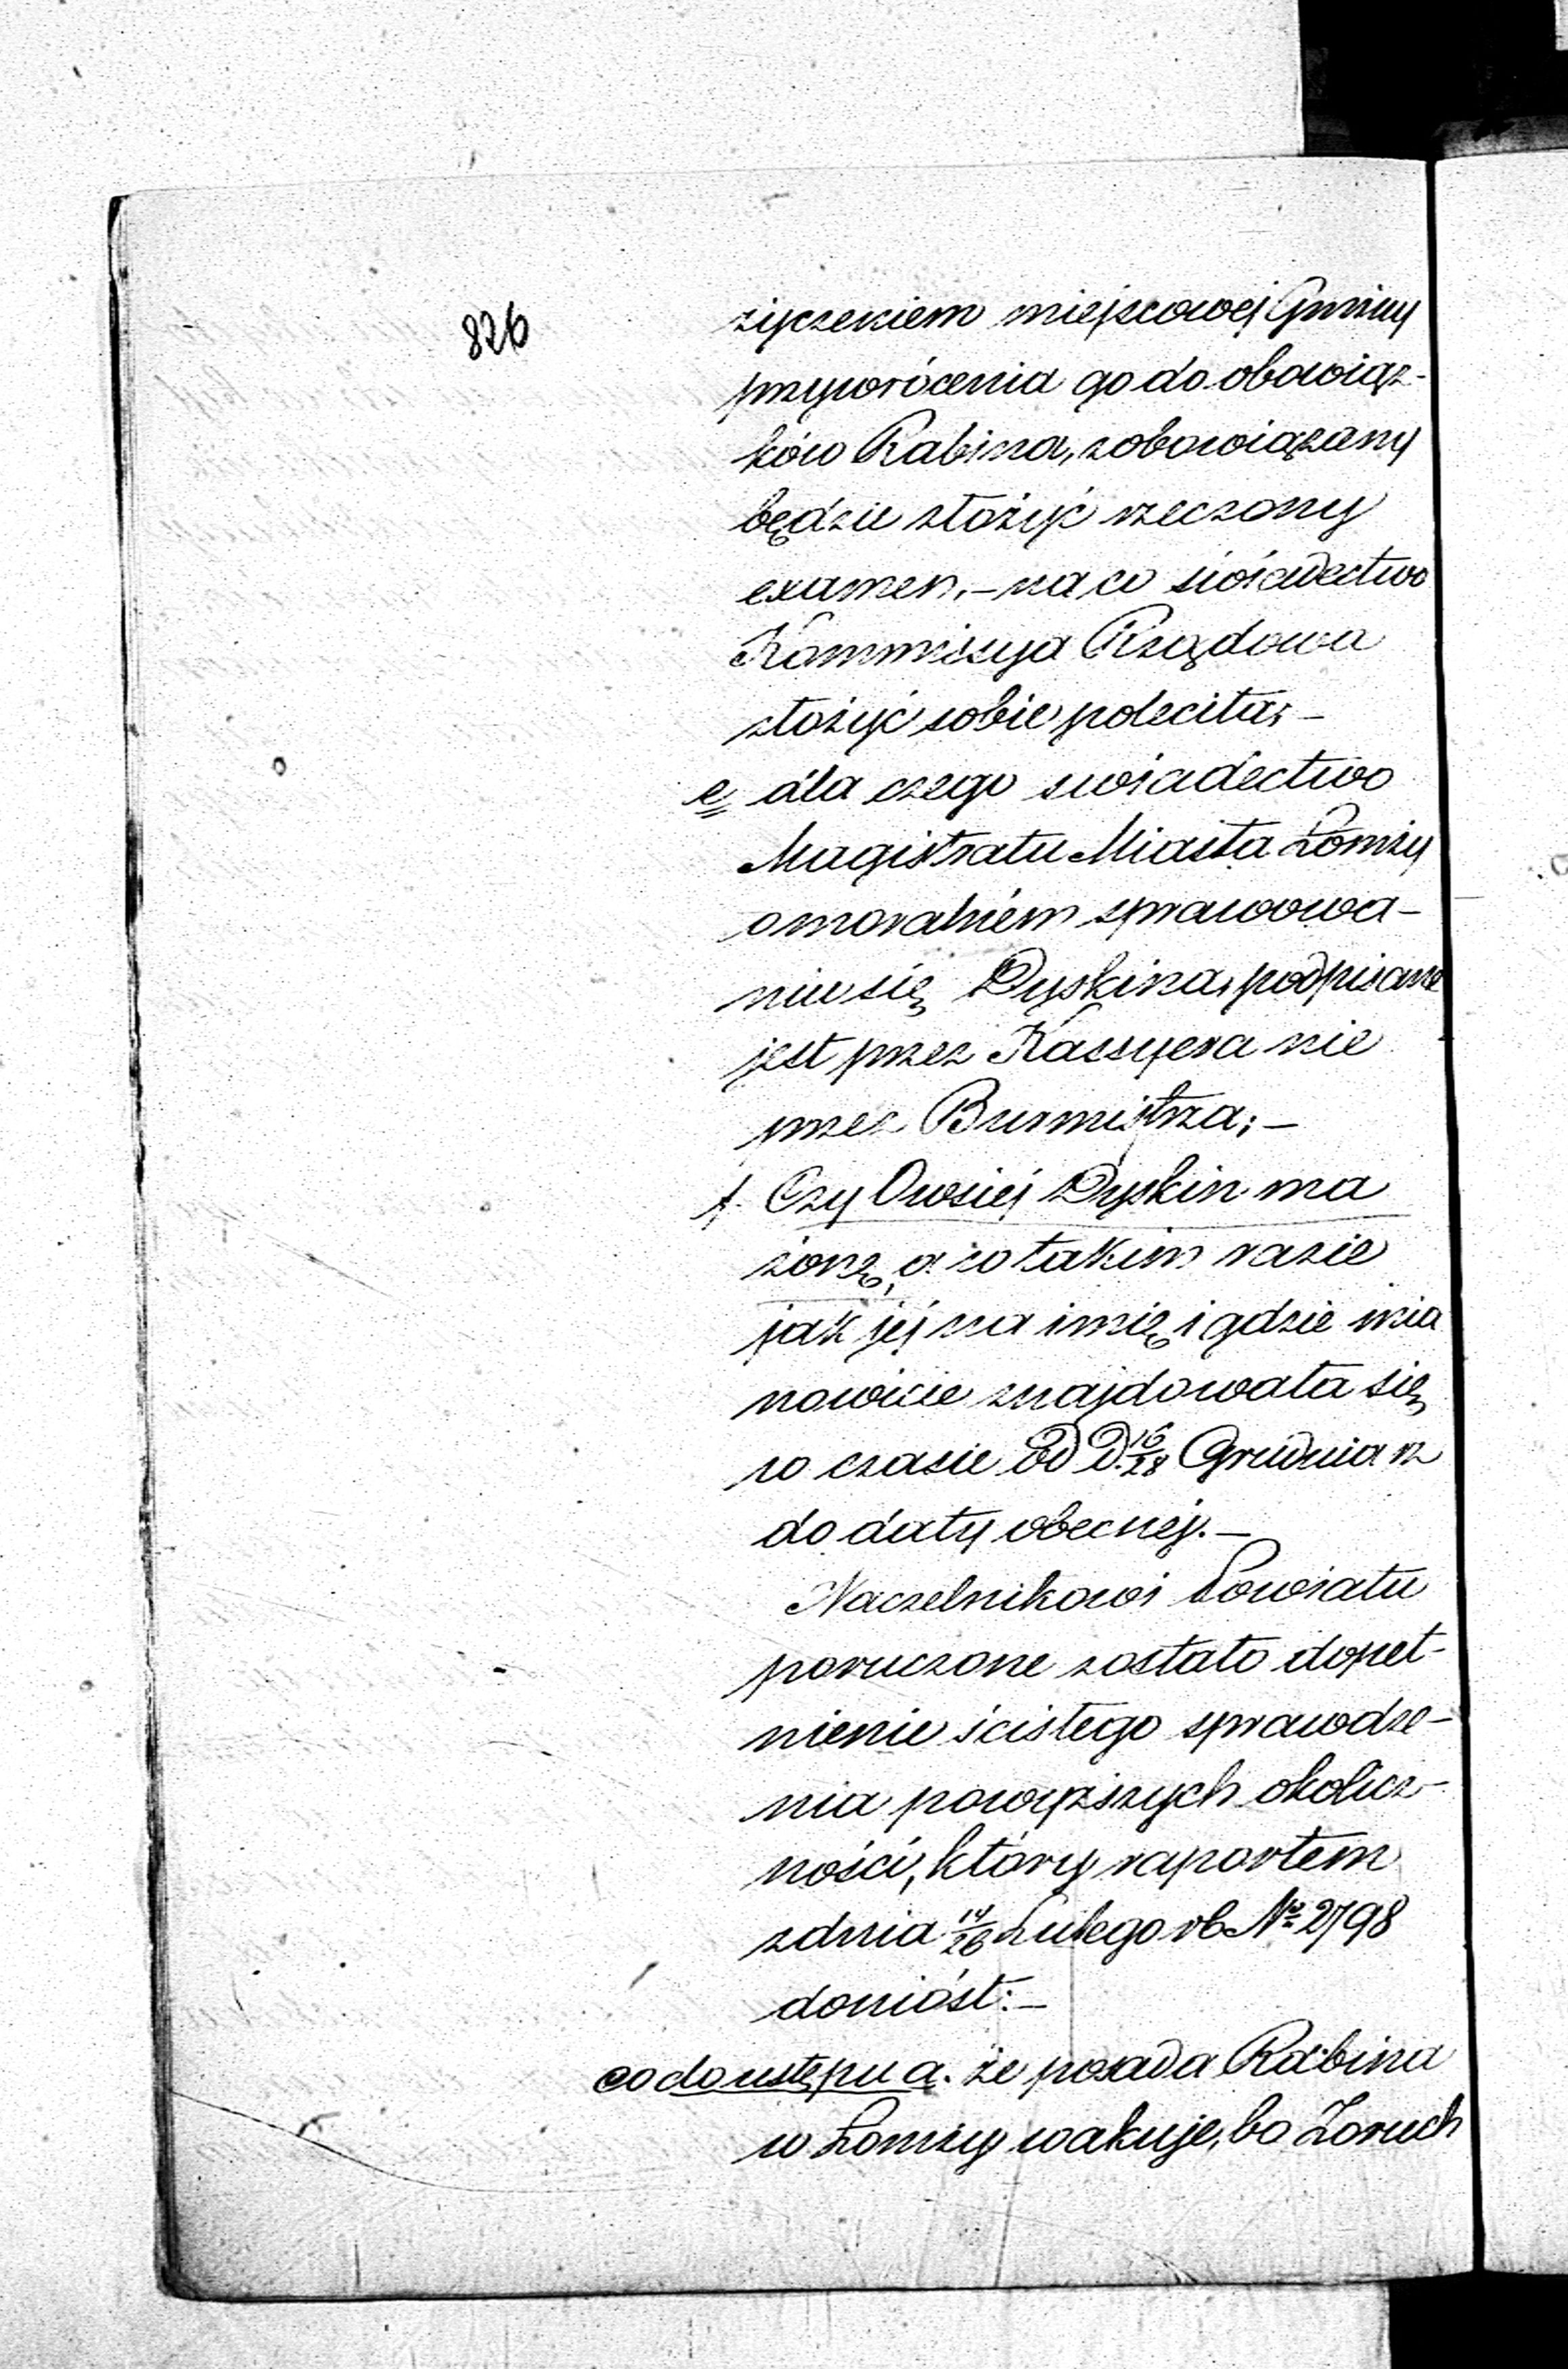 826
życzeniem miejscowej Gminy
przywrócenia go do obowiąz-
ków Rabina, zobowiązany
będzie złożyć rzeczony
examen, – na co świadectwo
Kommissya Rządowa
złożyć sobie poleciła; –
e, dla czego świadectwo
Magistratu Miasta Łomży
o moralném sprawowa-
niu się Dyskina, podpisane
jest przez Kassyera nie
przez Burmistrza; –
f. Czy Owsiej Dyskin ma
żonę, a w takim razie
jak jéj na imię i gdzie mia
nowicie znajdowała się
w czasie od D. 16/28 Grudnia rz
do daty obecnéj. –
Naczelnikowi Powiatu
poruczone zostało dopeł-
nienie ścisłego sprawdze-
nia powyższych okolicz-
ności, który raportem
z dnia 14/26 Lutego rb № 2798
doniósł: –
co do ustępu a. że posada Rabina
w Łomży wakuje, bo Zoruch